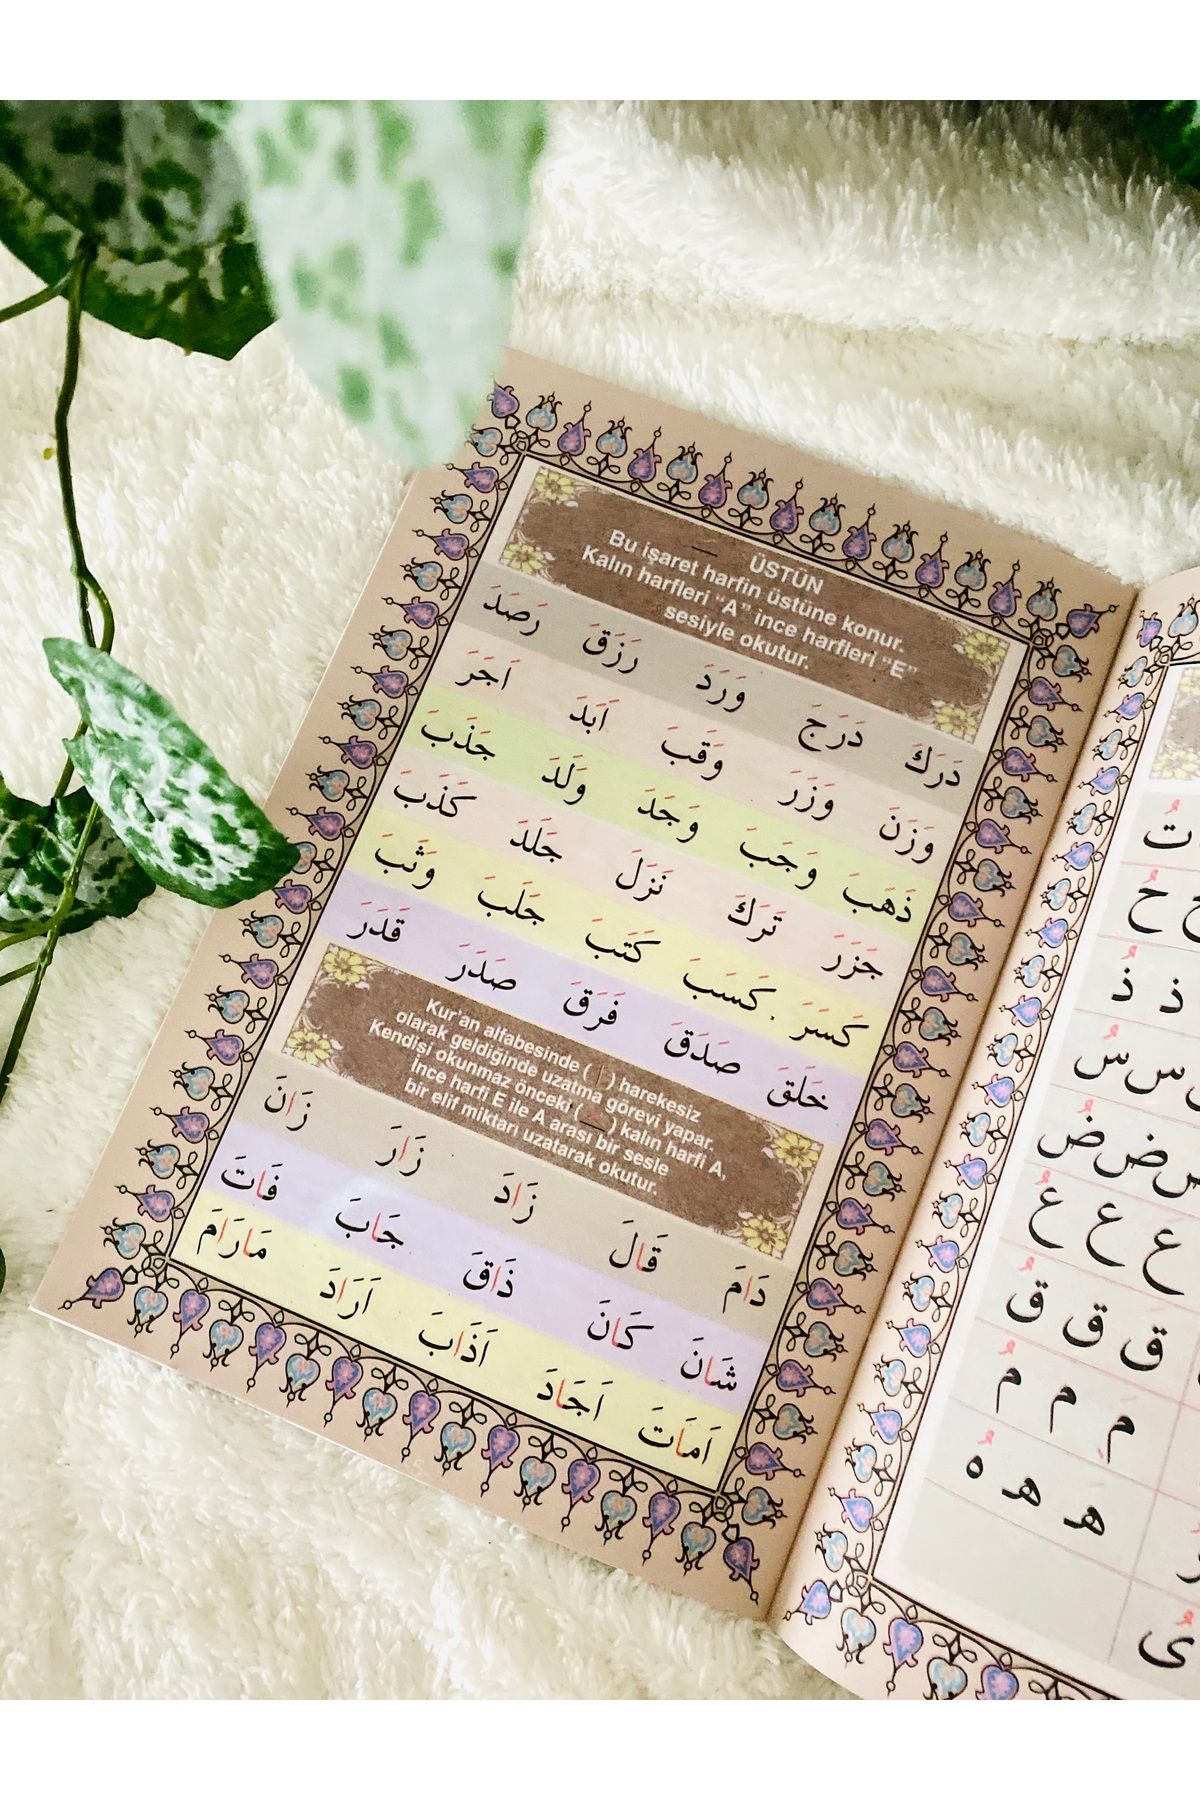 ÜSTÜN
Bu işaret harfin üstüne konur.
Kalın harfleri “A” ince harfleri “E”
sesiyle okutur.
دَرَكَ دَرَجَ وَرَدَ رَزَقَ رَصَدَ
وَزَنَ وَزَرَ وَقَبَ اَبَدَ اَجَرَ
ذَهَبَ وَجَبَ وَجَدَ وَلَدَ جَذَبَ
جَزَرَ تَرَكَ نَزَلَ جَلَدَ كَذَبَ
كَسَرَ . كَسَبَ كَتَبَ جَلَبَ وَثَبَ
خَلَقَ صَدَقَ فَرَقَ صَدَرَ قَدَرَ
Kur’an alfabesinde ( ا ) harekesiz
olarak geldiğinde uzatma görevi yapar.
Kendisi okunmaz önceki ( َ ) kalın harfi A,
İnce harfi E ile A arası bir sesle
bir elif miktarı uzatarak okutur.
دَامَ قَالَ زَادَ زَارَ زَانَ
شَانَ كَانَ ذَاقَ جَابَ فَاتَ
اَمَاتَ اَجَادَ اَذَابَ اَرَادَ مَارَامَ
تُ
حُ
ذ ذُ
س سُ
ض ضُ
ع ع عُ
ق ق قُ
م م مُ
ه ه هُ